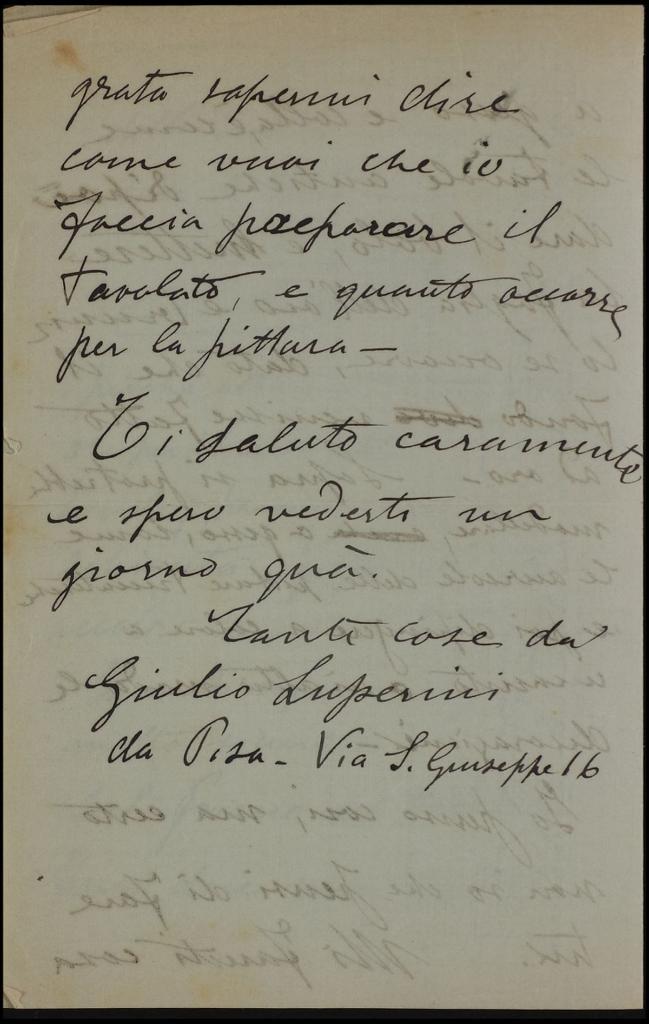 grata sapermi dire
come vuoi che io
faccia preparare il
tavolato, e quanto occorre
per la pittura —
Ti saluto caramente
e spero vederti un
giorno quà.
Tante cose da
Giulio Luperini
da Pisa - Via S. Giuseppe 16